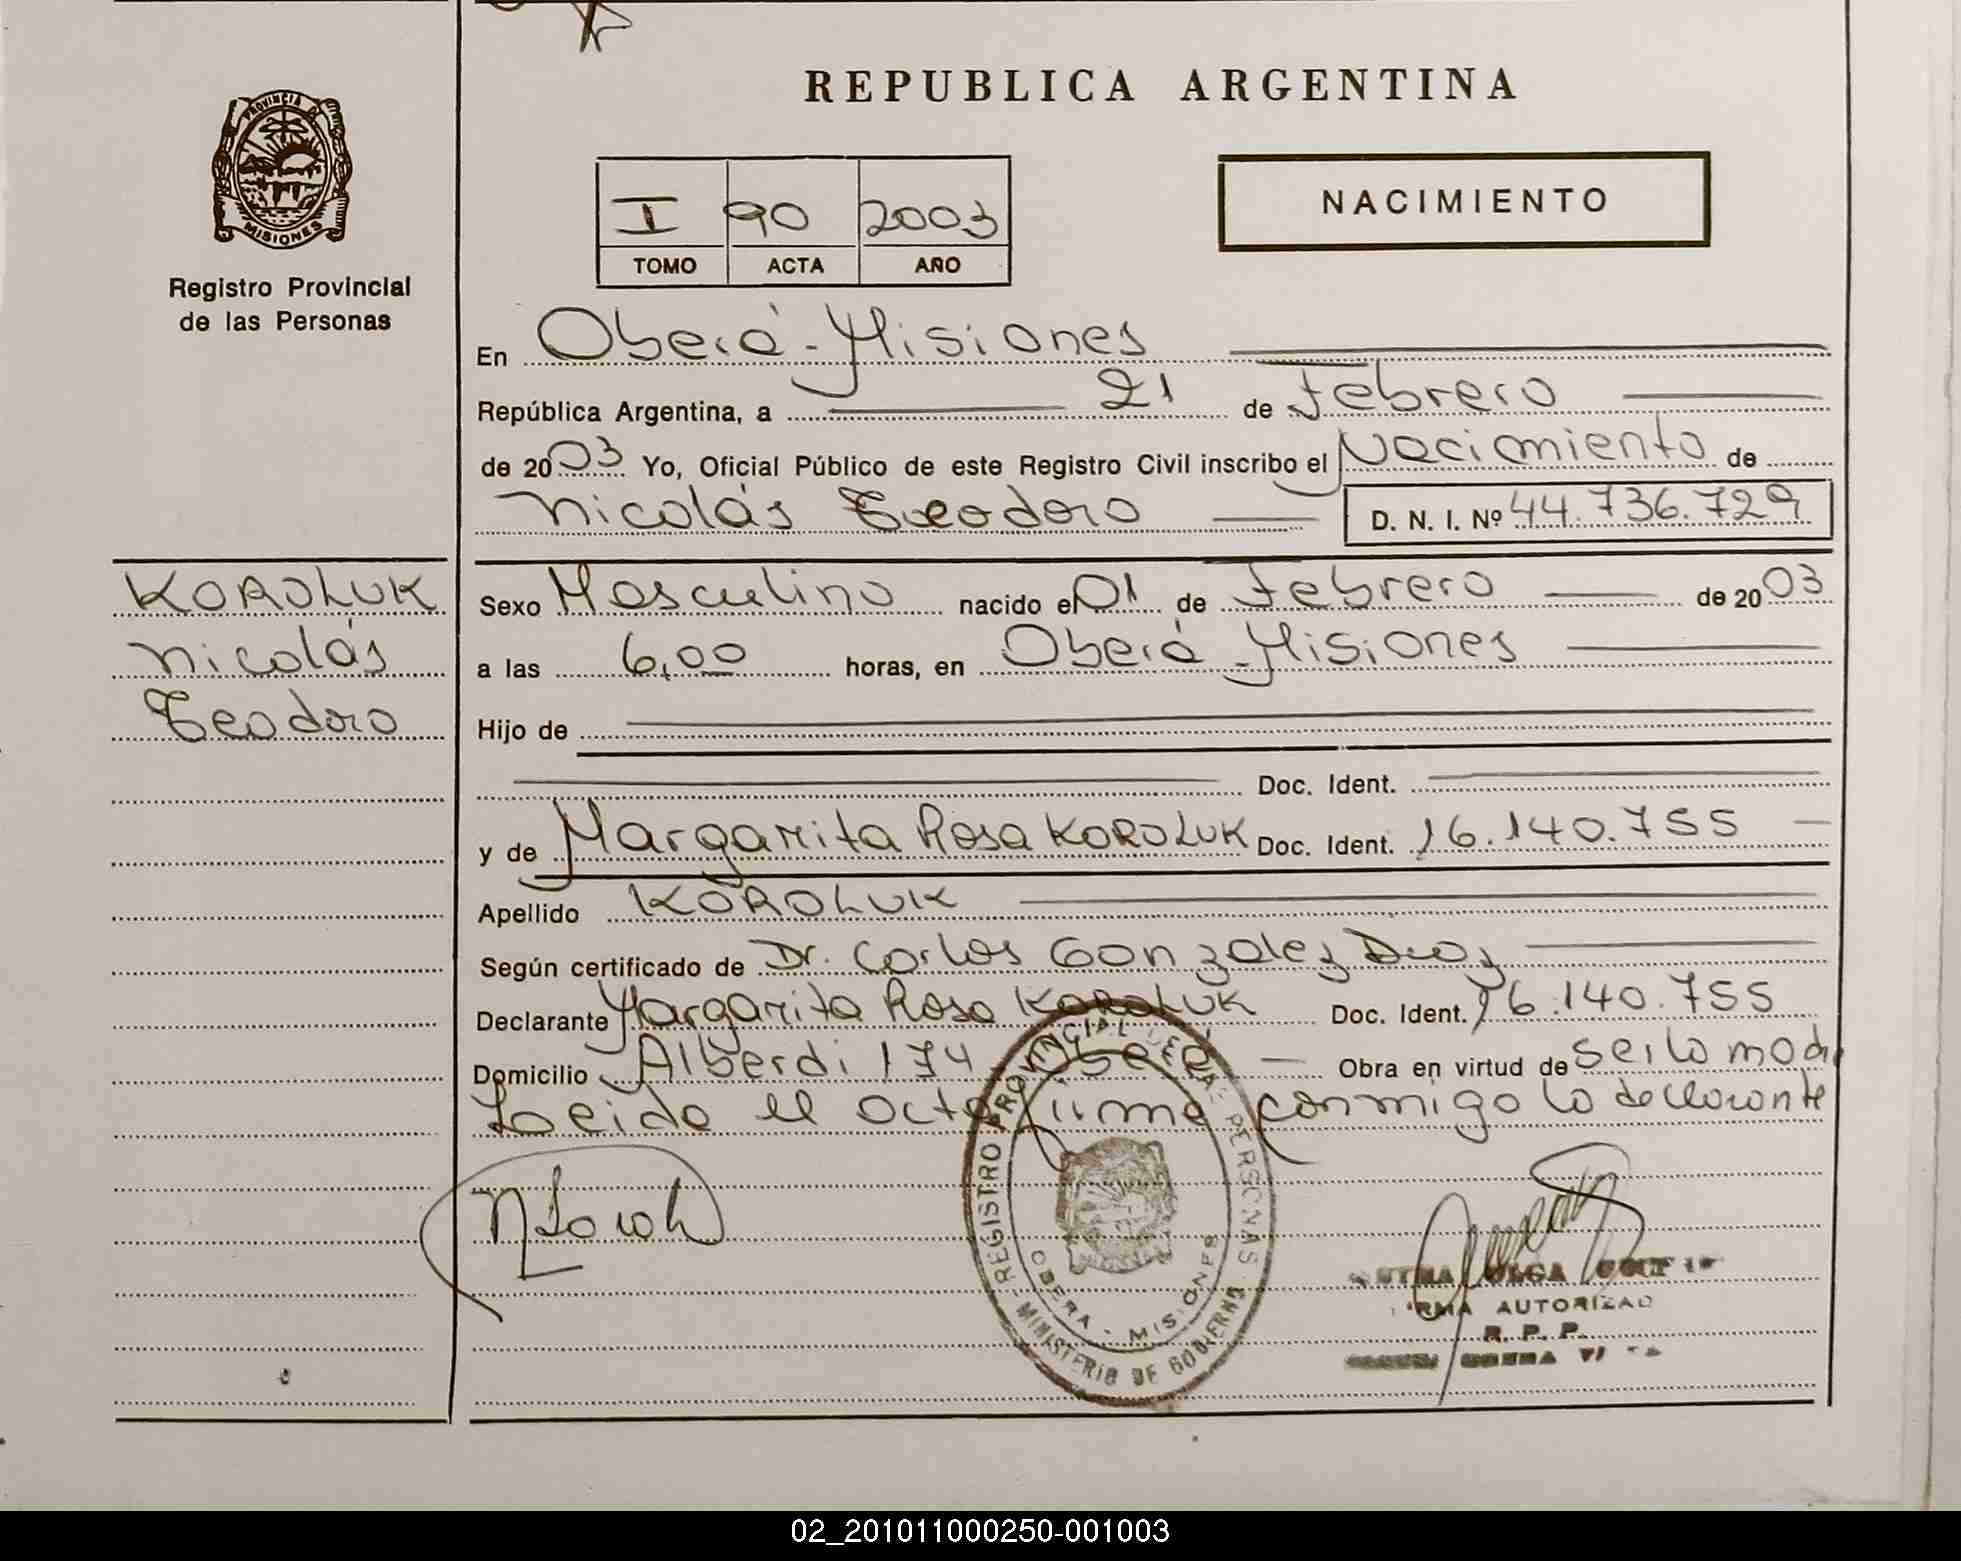 REPUBLICA ARGENTINA
PROVINCIA DE MISIONES
Registro Provincial
de las Personas
I 90 2003
TOMO ACTA AÑO
NACIMIENTO
En Oberá - Misiones
República Argentina, a 21 de Febrero
de 2003 Yo, Oficial Público de este Registro Civil inscribo el Nacimiento de
Nicolás Teodoro D. N. I. Nº 44.736.729
KOROLUK
Nicolás
Teodoro
Sexo Masculino nacido el 01 de Febrero de 2003
a las 6,00 horas, en Oberá - Misiones
Hijo de
Doc. Ident.
y de Margarita Rosa KOROLUK Doc. Ident. 16.140.755
Apellido KOROLUK
Según certificado de Dr. Carlos Gonzalez
Declarante Margarita Rosa KOROLUK Doc. Ident. 16.140.755
Domicilio Alberdi 174 Oberá Obra en virtud de ser la madre
Leida el acta firma conmigo la declarante
REGISTRO PROVINCIAL DE LAS PERSONAS
OBERA - MISIONES
MINISTERIO DE GOBIERNO
OLGA
FIRMA AUTORIZAD
R. P. P.
02_201011000250-001003